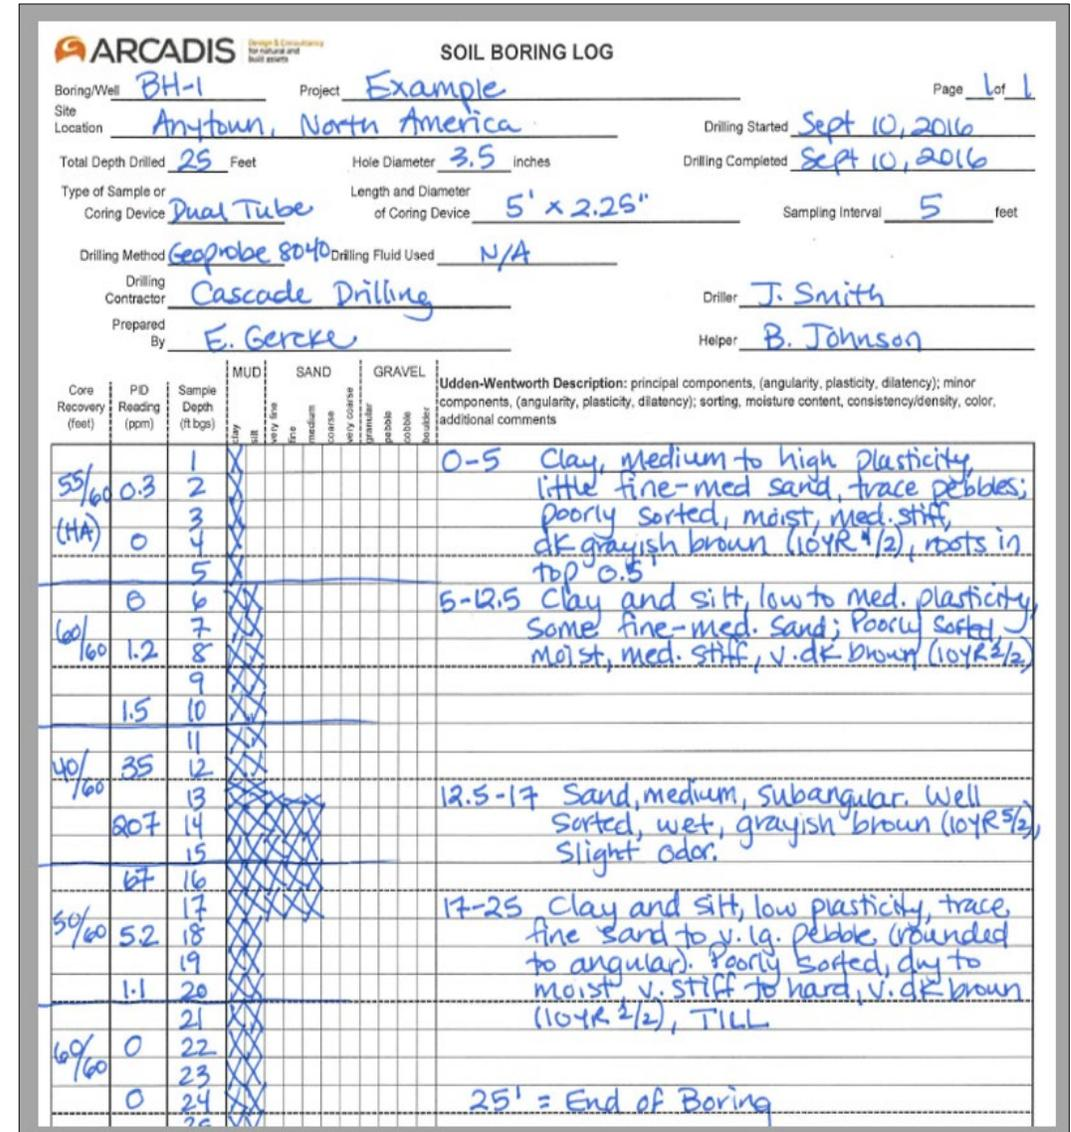 ARCADIS Design & Consultancy
for natural and
built assets
SOIL BORING LOG
Boring/Well BH-1 Project Example Page 1 of 1
Site
Location Anytown, North America Drilling Started Sept 10, 2016
Total Depth Drilled 25 Feet Hole Diameter 3.5 inches Drilling Completed Sept 10, 2016
Type of Sample or
Coring Device Dual Tube Length and Diameter
of Coring Device 5' x 2.25" Sampling Interval 5 feet
Drilling Method Geoprobe 8040 Drilling Fluid Used N/A
Drilling
Contractor Cascade Drilling Driller J. Smith
Prepared
By E. Gercke Helper B. Johnson
MUD SAND GRAVEL
Core
Recovery
(feet)
PID
Reading
(ppm)
Sample
Depth
(ft bgs)
clay
silt
very fine
fine
medium
coarse
very coarse
granular
pebble
cobble
boulder
Udden-Wentworth Description: principal components, (angularity, plasticity, dilatency); minor
components, (angularity, plasticity, dilatency); sorting, moisture content, consistency/density, color,
additional comments
1 X 0-5 Clay, medium to high plasticity,
55/60 0.3 2 X little fine-med sand, trace pebbles;
3 X poorly sorted, moist, med. stiff,
(HA) 0 4 X dk grayish brown (10YR 4/2), roots in
5 X top 0.5'
0 6 XX 5-12.5 Clay and silt, low to med. plasticity,
7 XX some fine-med. sand; Poorly sorted,
60/60 1.2 8 XX moist, med. stiff, v.dk brown (10YR 2/2)
9 XX
1.5 10 XX
11 XX
40/60 35 12 XX
13 XXXXX 12.5-17 Sand, medium, subangular. Well
207 14 XXXXX sorted, wet, grayish brown (10YR 5/2),
15 XXXXX Slight odor.
67 16 XXXXX
17 XXXXX 17-25 Clay and silt, low plasticity, trace
50/60 5.2 18 XX fine sand to v. lg. pebble (rounded
19 XX to angular). Poorly sorted, dry to
1.1 20 XX moist, v. stiff to hard, v. dk brown
21 XX (10YR 2/2), TILL
60/60 0 22 XX
23 XX
0 24 XX 25' = End of Boring
25